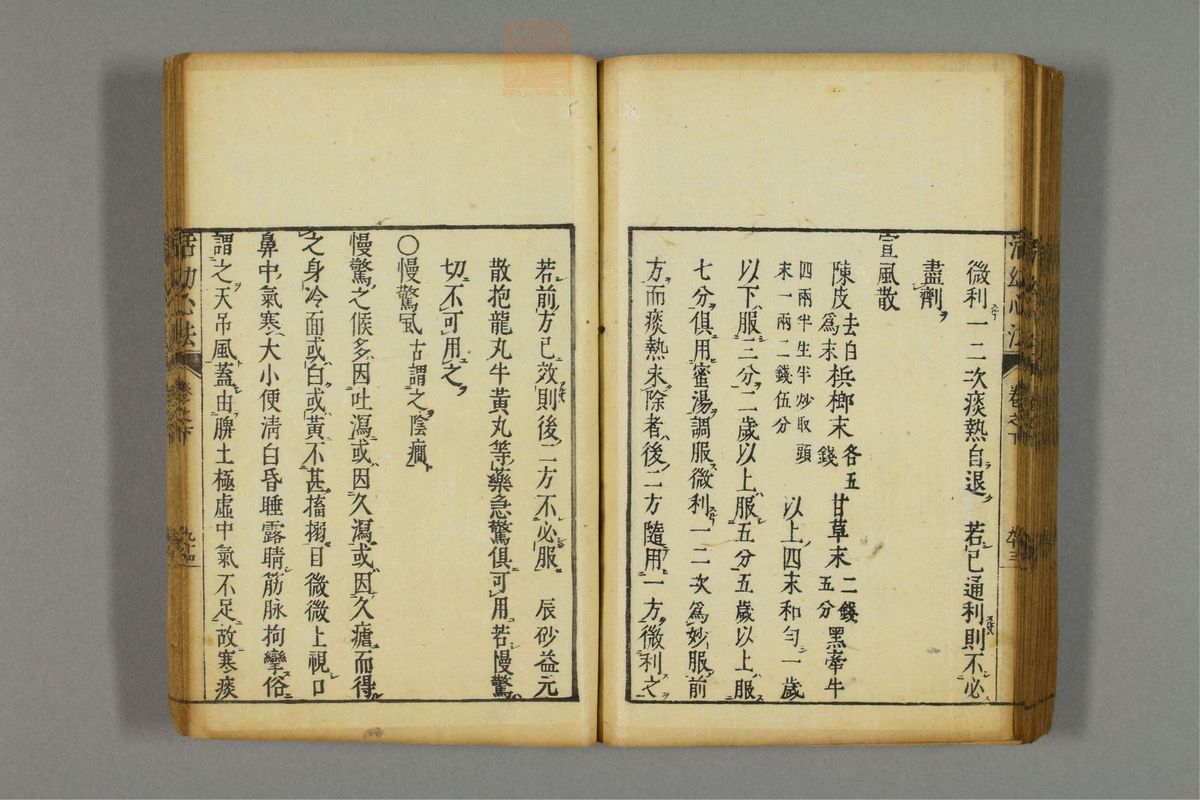 微利一二次痰熱自退 若已通利則不必
盡劑
宣風散
陳皮去白為末檳榔末各五錢甘草末二錢五分黑牽牛
四兩半生半炒取頭末一兩二錢伍分 以上四末和勻一歲
以下服三分二歲以上服五分五歲以上服
七分俱用蜜湯調服微利一二次為妙服前
方而痰熱未除者後二方隨用一方微利之
若前方已效則後二方不必服 辰砂益元
散抱龍丸牛黃丸等藥急驚俱可用若慢驚
切不可用之
〇慢驚風古謂之陰癇
慢驚之候多因吐瀉或因久瀉或因久瘧而得
之身冷面或白或黃不甚搐搦目微微上視口
鼻中氣寒大小便清白昏睡露睛筋脉拘攣俗
謂之天吊風蓋由脾土極虛中氣不足故寒痰
活幼心法 卷之下